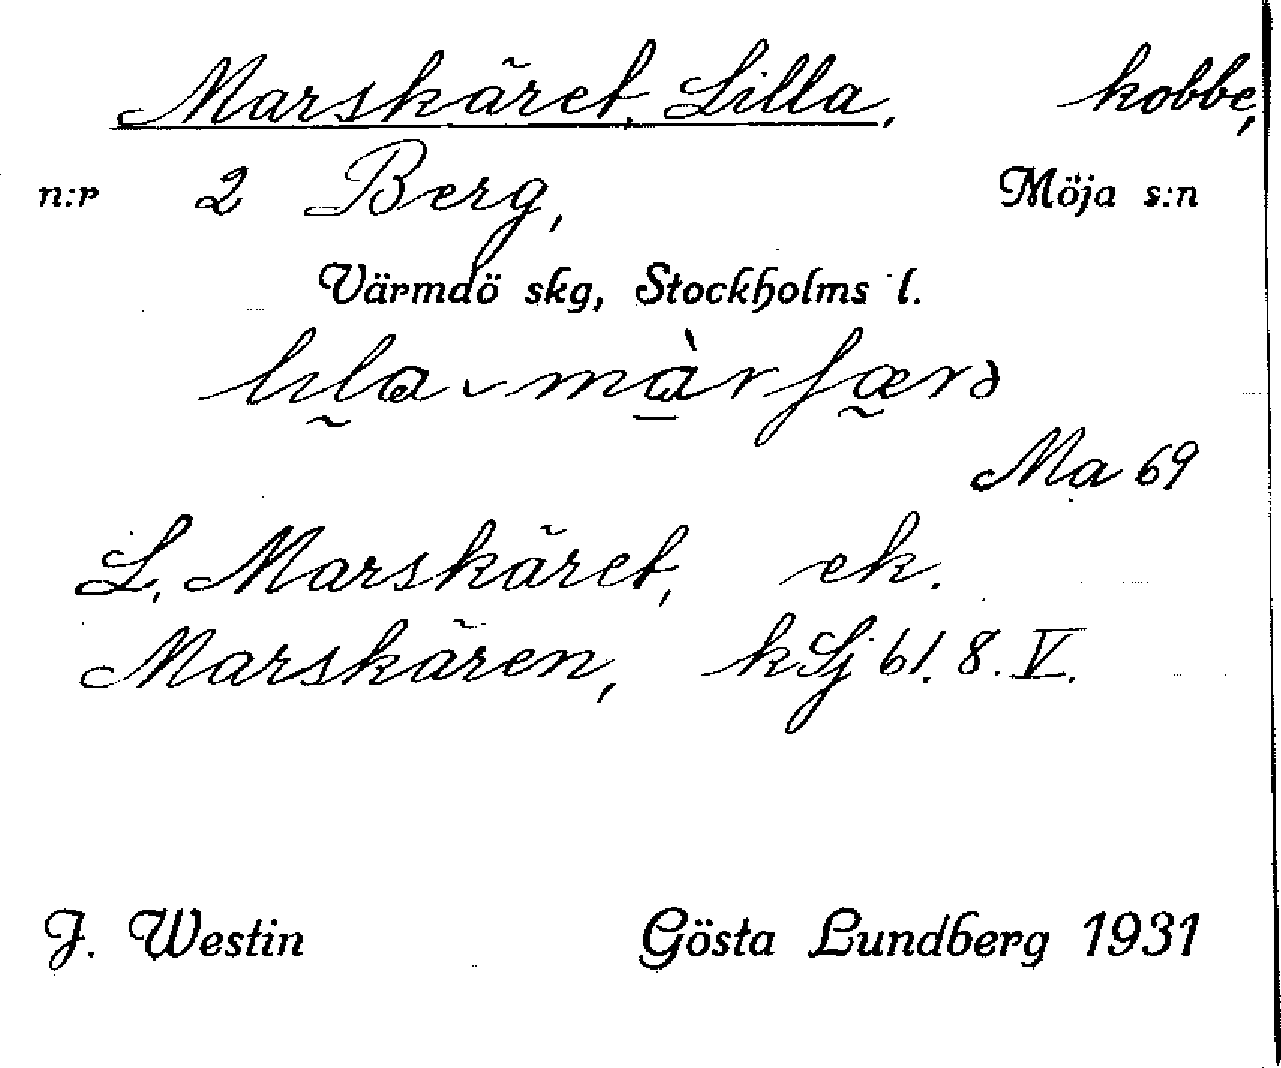 Marskäret, Lilla, kobbe,
n:r 2 Berg, Möja s:n
Värmdö skg, Stockholms l.
Ma 69
L. Marskäret, ek.
Marskären, kSj 61. 8. V.
J. Westin Gösta Lundberg 1931